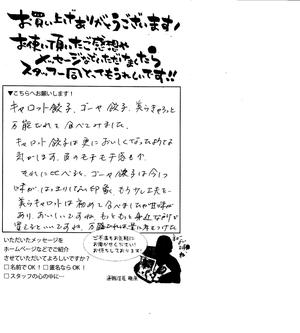 お買い上げありがとうございます!
お使い頂いたご感想や
メッセージなどいただけましたら
スタッフ一同とってもうれしいです!!
▼こちらへお願いします!
キャロット餃子、ゴーヤ餃子、美らきゃろっと
万能だれで食べてみました。
キャロット餃子は更においしくなったみたいな
気がします。皮のモチモチ感も♪
それに比べると、ゴーヤ餃子は今いち
味がはっきりしない印象、もう少し工夫を…
美らキャロットは初めて食べましたが甘味が
あり、おいしいですね。もともと
いいですね。万能だれは
いただいたメッセージを
ホームページなどでご紹介
させていただいてよろしいですか?
□名前でOK! □匿名ならOK!
□スタッフの心の中に…
ご不満もお気軽に
お聞かせください!
お待ちしております